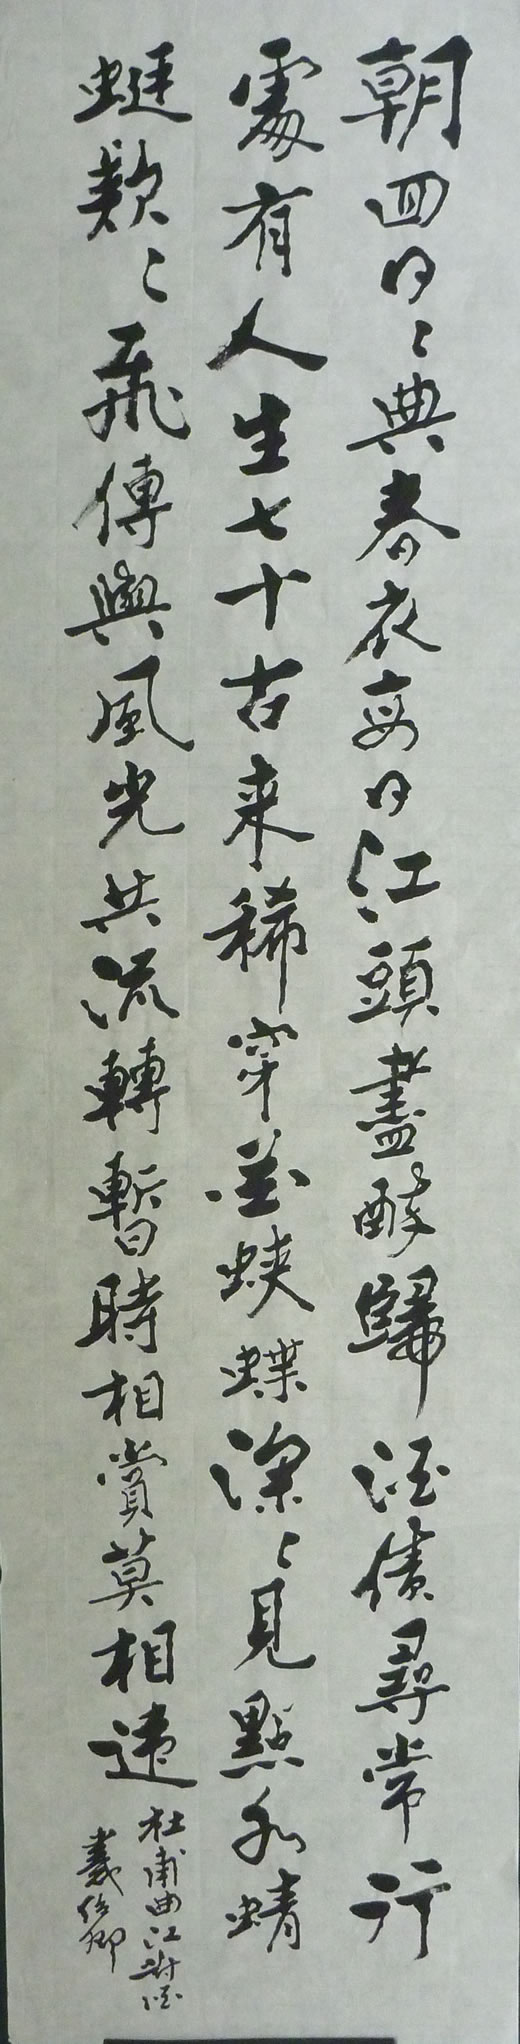 朝回日々典春衣每日江頭盡醉歸酒債尋常行
處有人生七十古来稀穿花蛺蝶深々見點水蜻
蜓款々飛傳與風光共流轉暫時相賞莫相違
杜甫曲江對酒